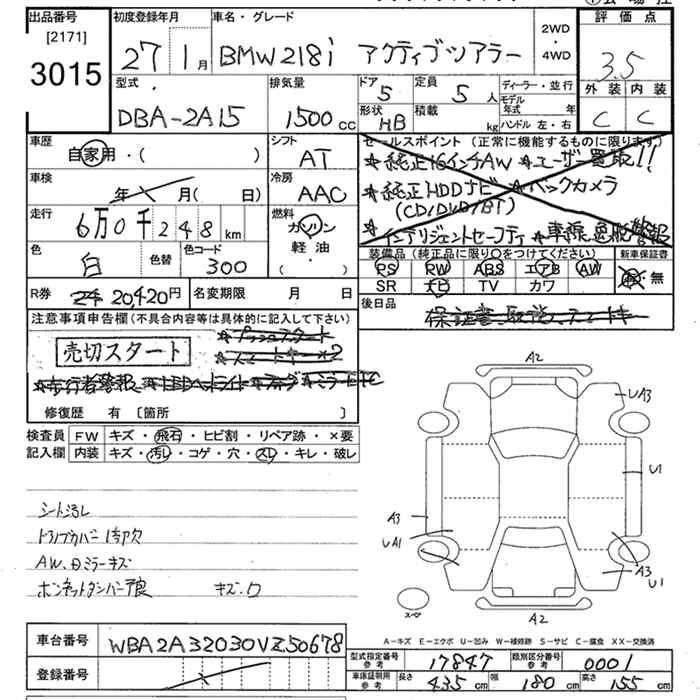 出品番号
[2171]
3015
初度登録年月
27 1月
車名・グレード
BMW218i アクティブツアラー
2WD
・
4WD
評価点
3.5
外装 内装
C C
型式
DBA-2A15
排気量
1500 cc
ドア
5
定員
5人
ディーラー・並行
モデル年式 年
形状
HB
積載 kg
ハンドル 左・右
車歴
自家用・( )
シフト
AT
セールスポイント(正常に機能するものに限ります)
★純正16インチAW ★ユーザー買取!!
★純正HDDナビ ★バックカメラ
(CD/DVD/BT)
★インテリジェントセーフティ ★車線逸脱警報
車検
年 月( 日)
冷房
AAC
走行
6万0千248km
燃料
ガソリン
軽油
( ・ )
色
白
色替
色コード
300
装備品(純正品に限り○をつけてください)
PS RW ABS エアB AW
SR ナビ TV カワ
新車保証書
有・無
R券 20,420円
名変期限 月 日
後日品
注意事項申告欄(不具合内容等は具体的に記入して下さい)
売切スタート
★プッシュスタート
★スマートキー×2
★歩行者警報 ★LEDヘッドライト ★ミラーETC
修復歴 有 [箇所 ]
検査員 FW キズ・飛石・ヒビ割・リペア跡・×要
記入欄 内装 キズ・汚レ・コゲ・穴・スレ・キレ・破レ
シート汚れ
AW.Dミラーキズ
キズ.ワ
A2
UA3
U1
A3
UA1
A3
U1
スペアー
A2
A-キズ E-エクボ U-凹み W-補修跡 S-サビ C-腐食 XX-交換済
車台番号
WBA2A32030VZ50678
登録番号
型式指定番号 参考 17847
類別区分番号 参考 0001
車庫証明用 参考 長さ 435cm 幅 180cm 高さ 155cm